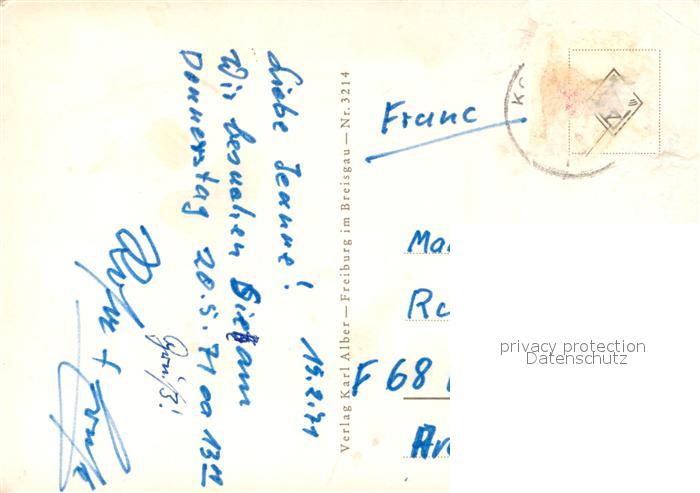 19.2.71
Liebe Jeanne!
Wir besuchen Sie am
Donnerstag 20.5.71 ca 13 H
Gruß!
Verlag Karl Alber — Freiburg im Breisgau — Nr. 3214
Franc
Ma
F 68
privacy protection
Datenschutz